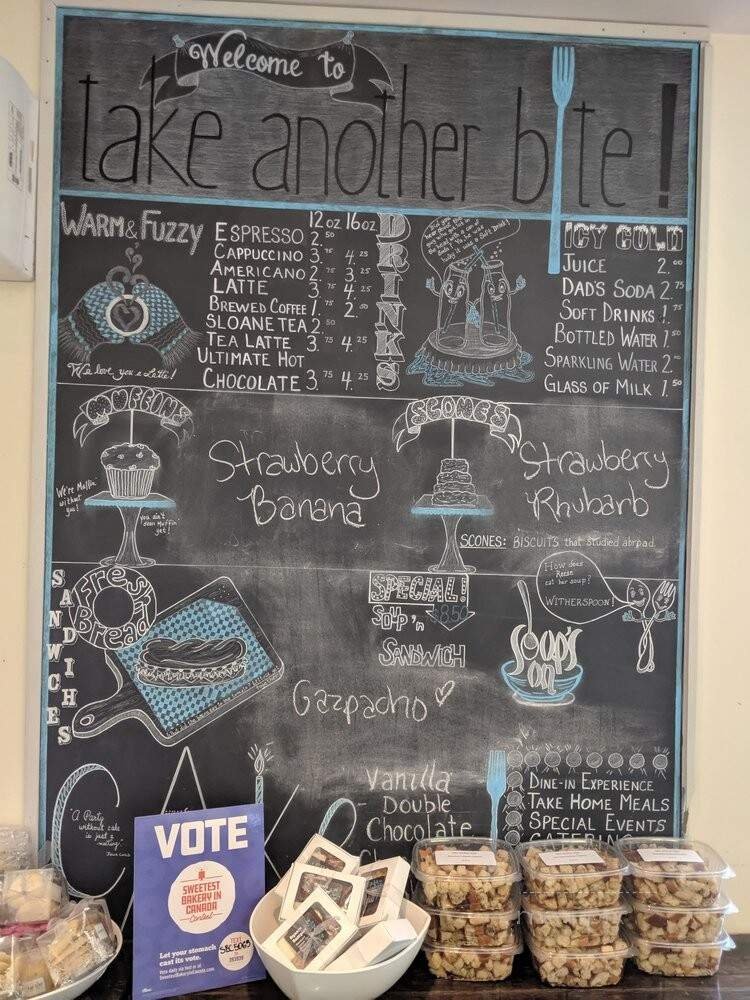 Welcome to
take another bite!
WARM & FUZZY
12 oz 16 oz
ESPRESSO 2.50
CAPPUCCINO 3.75 4.25
AMERICANO 2.75 3.25
LATTE 3.75 4.25
BREWED COFFEE 1.75 2.00
SLOANE TEA 2.50
TEA LATTE 3.75 4.25
ULTIMATE HOT
CHOCOLATE 3.75 4.25
We love you a Latte!
DRINKS
ICY COLD
JUICE 2.00
DAD'S SODA 2.75
SOFT DRINKS 1.75
BOTTLED WATER 1.50
SPARKLING WATER 2.00
GLASS OF MILK 1.50
MUFFINS
We're Muffin
without
you!
you ain't
seen Muffin
yet!
Strawberry
Banana
SCONES
Strawberry
Rhubarb
SCONES: BISCUITS that studied abroad
SANDWICHES
Fresh
Bread
SPECIAL!
SOUP 'n $8.50
SANDWICH
Gazpacho
How does
Reese
eat her soup?
WITHERSPOON!
Soup's
on
CAK
"A Party
without cake
is just a
meeting"
Julia Child
Vanilla
Double
Chocolate
DINE-IN EXPERIENCE
TAKE HOME MEALS
SPECIAL EVENTS
CATERING
VOTE
SWEETEST
BAKERY IN
CANADA
Contest
Let your stomach
cast its vote.
TEXT
SBC5069